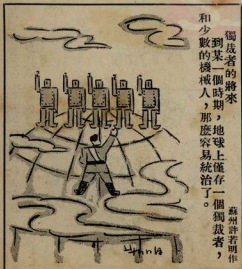 獨裁者的將來
到某一個時期，地球上僅存一個獨裁者，
和少數的機械人，那麼容易統治了。
蘇州許若明作